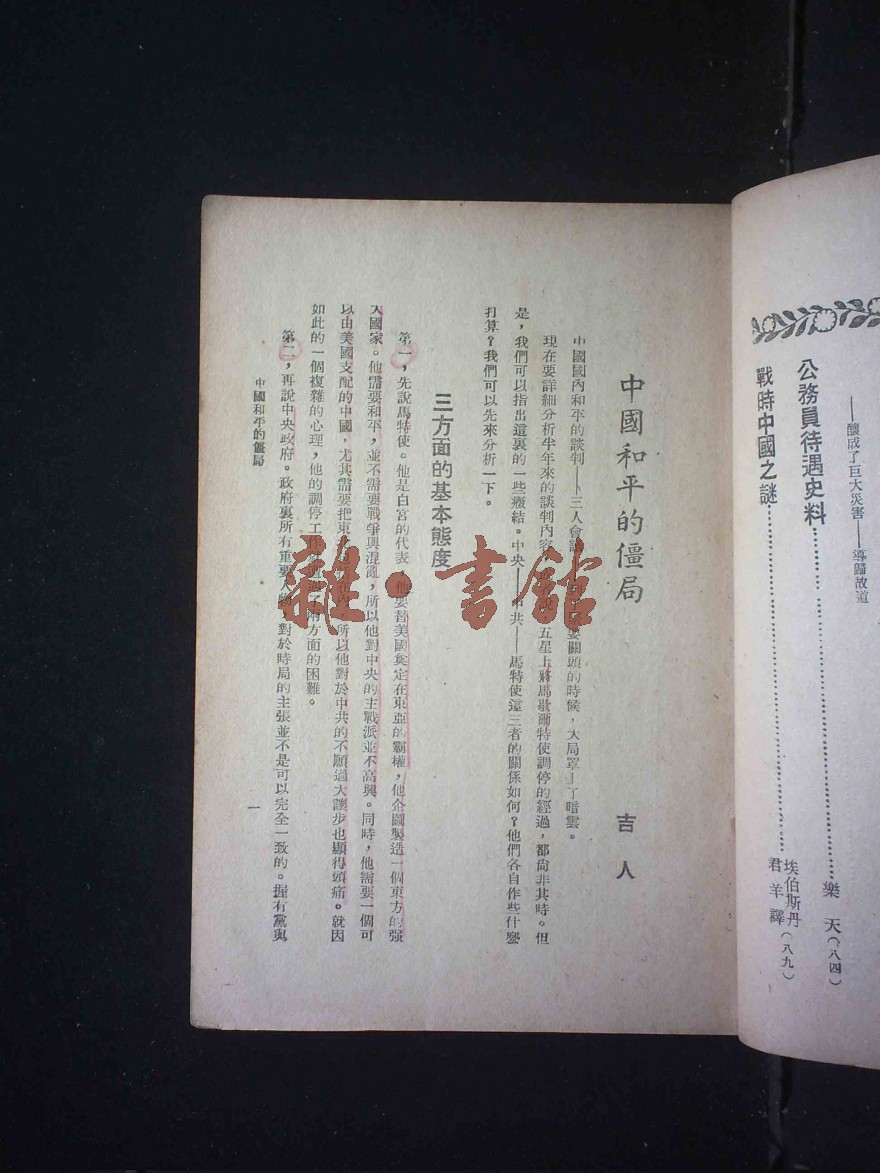 ——釀成了巨大災害——導歸故道
公務員待遇史料……………………樂天(八四)
戰時中國之謎……………………埃伯斯丹
君羊譯(八九)
中國和平的僵局
吉人
中國國內和平的談判——三人會議 要關頭的時候,大局罩上了暗雲。
現在要詳細分析半年來的談判內容 五星上將馬歇爾特使調停的經過,都尙非其時。但
是,我們可以指出這裏的一些癥結。中央——中共——馬特使這三者的關係如何?他們各自作些什麼
打算?我們可以先來分析一下。
三方面的基本態度
第一,先說馬特使。他是白宮的代表,他要替美國奠定在東亞的霸權,他企圖製造一個東方的强
大國家。他需要和平,並不需要戰爭與混亂,所以他對中央的主戰派並不高興。同時,他需要一個可
以由美國支配的中國,尤其需要把東 所以他對於中共的不願過大讓步也顯得頭痛。就因
如此的一個複雜的心理,他的調停工作 兩方面的困難。
第二,再說中央政府。政府裏所有重要人物,對於時局的主張並不是可以完全一致的。握有黨與
中國和平的僵局
一
雜·書館